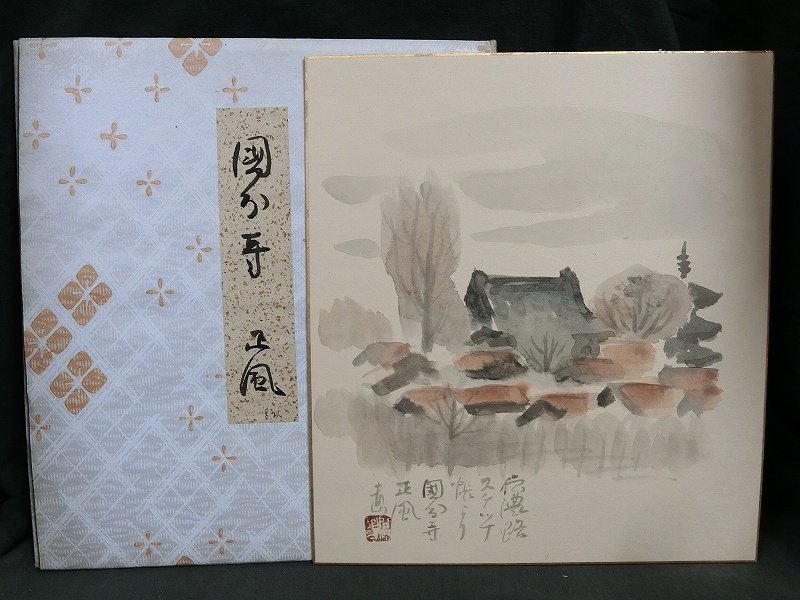 國分寺 正風
濃路
スケッチ
帳より
國分寺
正風
画